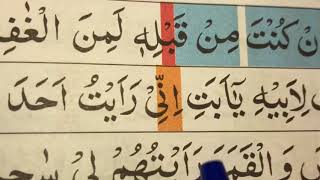 كُنْتَ مِنْ قَبْلِهٖ لَمِنَ
لِاَبِيْهِ يٰۤاَبَتِ اِنِّيْ رَاَيْتُ اَحَدَ
وَالْقَمَرَ رَاَيْتُهُمْ لِيْ